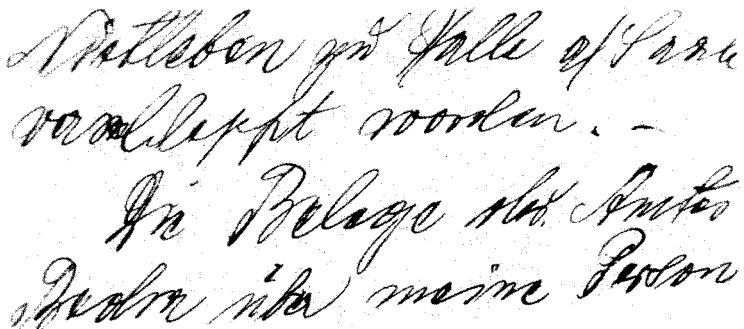 Nietleben zu Halle a/Saale
verschleppt worden. –
Die Belege des. Amtes
über meine Person